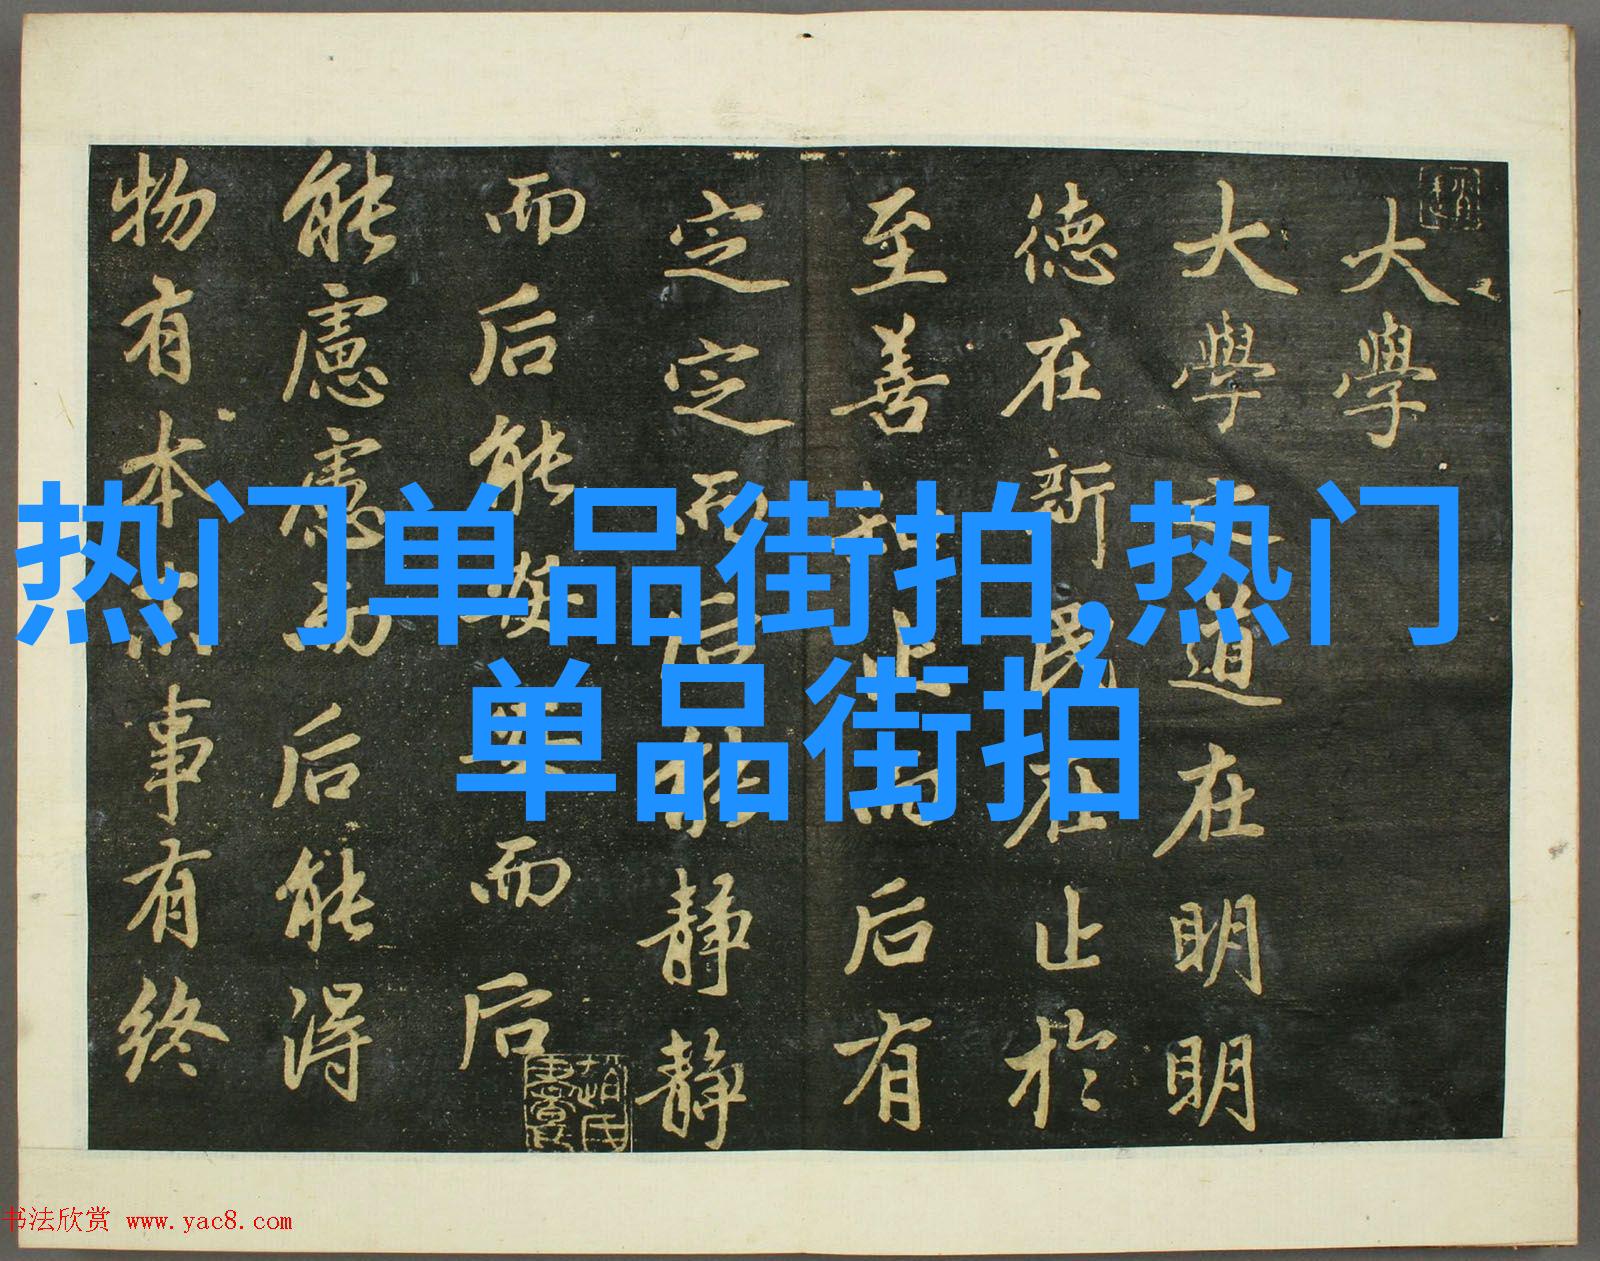 大學
大學之道在明明
德在新民在止於
至善知止而后有
定定而后能靜靜
而后能安安而后
能慮慮而后能得
物有本末事有終
热门单品街拍,热门
单品街拍
书法欣赏 www.yac8.com